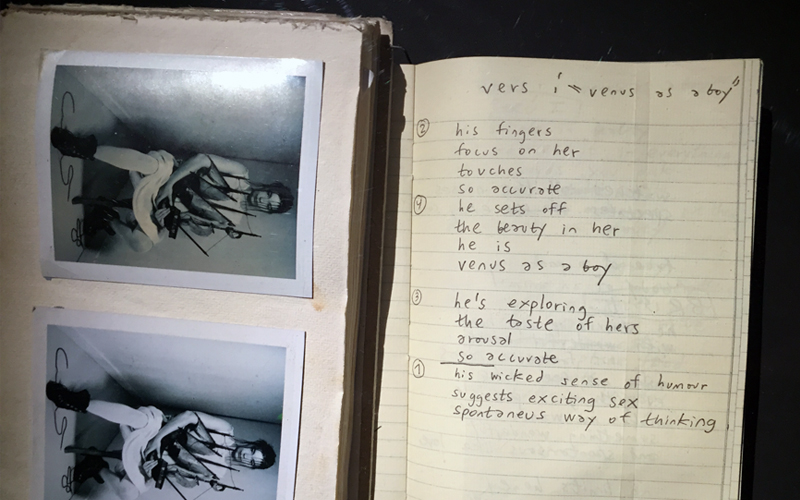 vers i "venus as a boy"
② his fingers
focus on her
touches
so accurate
④ he sets off
the beauty in her
he is
venus as a boy
③ he's exploring
the taste of hers
arousal
so accurate
① his wicked sense of humour
suggests exciting sex
spontaneus way of thinking